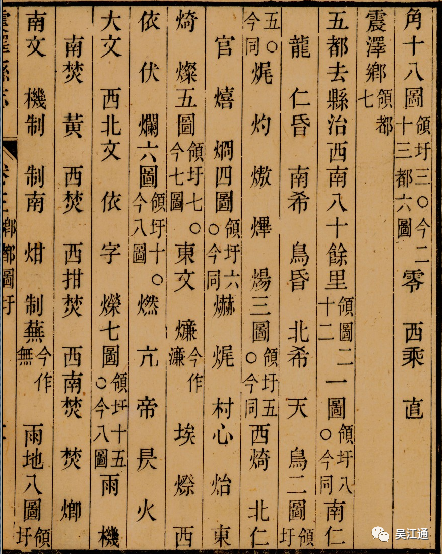 角十八圖領圩三〇今二十三都六圖零 西乘 直
震澤鄉領都七
五都去縣治西南八十餘里領圖十二二一圖領圩八〇今同南仁
龍 仁昏 南希 鳥昏 北希 天 鳥二圖領圩
五〇今同焜 灼 燉 熚 煬三圖領圩五〇今同西焴 北仁
官 熺 焵四圖領圩六〇今同爀 焜 村心 炲 東
焴 燦五圖領圩七〇今七圖東文 熑今作濂 埃 西
依 伏 爛六圖領圩十〇今八圖燃 亢 帝 昃 火
大文 西北文 依 字 爍七圖領圩十五〇今八圖雨 機
南焚 黃 西焚 西拑焚 西南焚 焚
南文 機制 制南 炶 制蕪今作無 雨地八圖領圩
震澤縣志 卷三 鄉都圖圩
吴江通